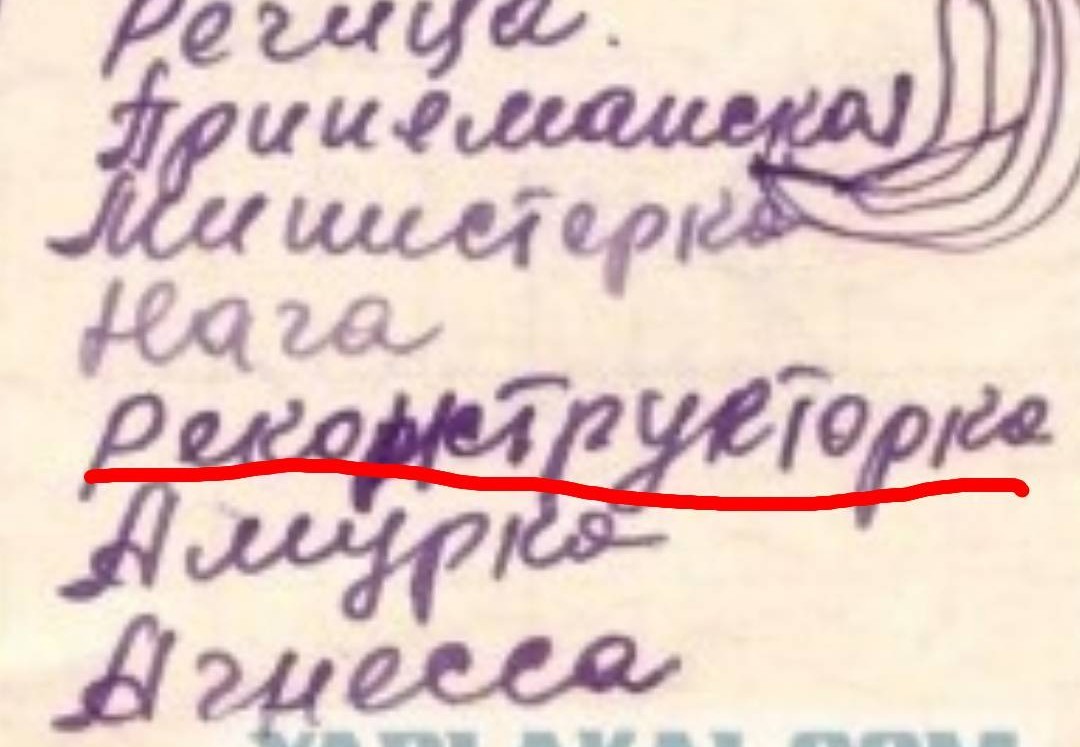 Речица.
Принеманская
Министерка
Нага
Реконструкторка
Амурка
Агнесса
YAPLAKAL.COM